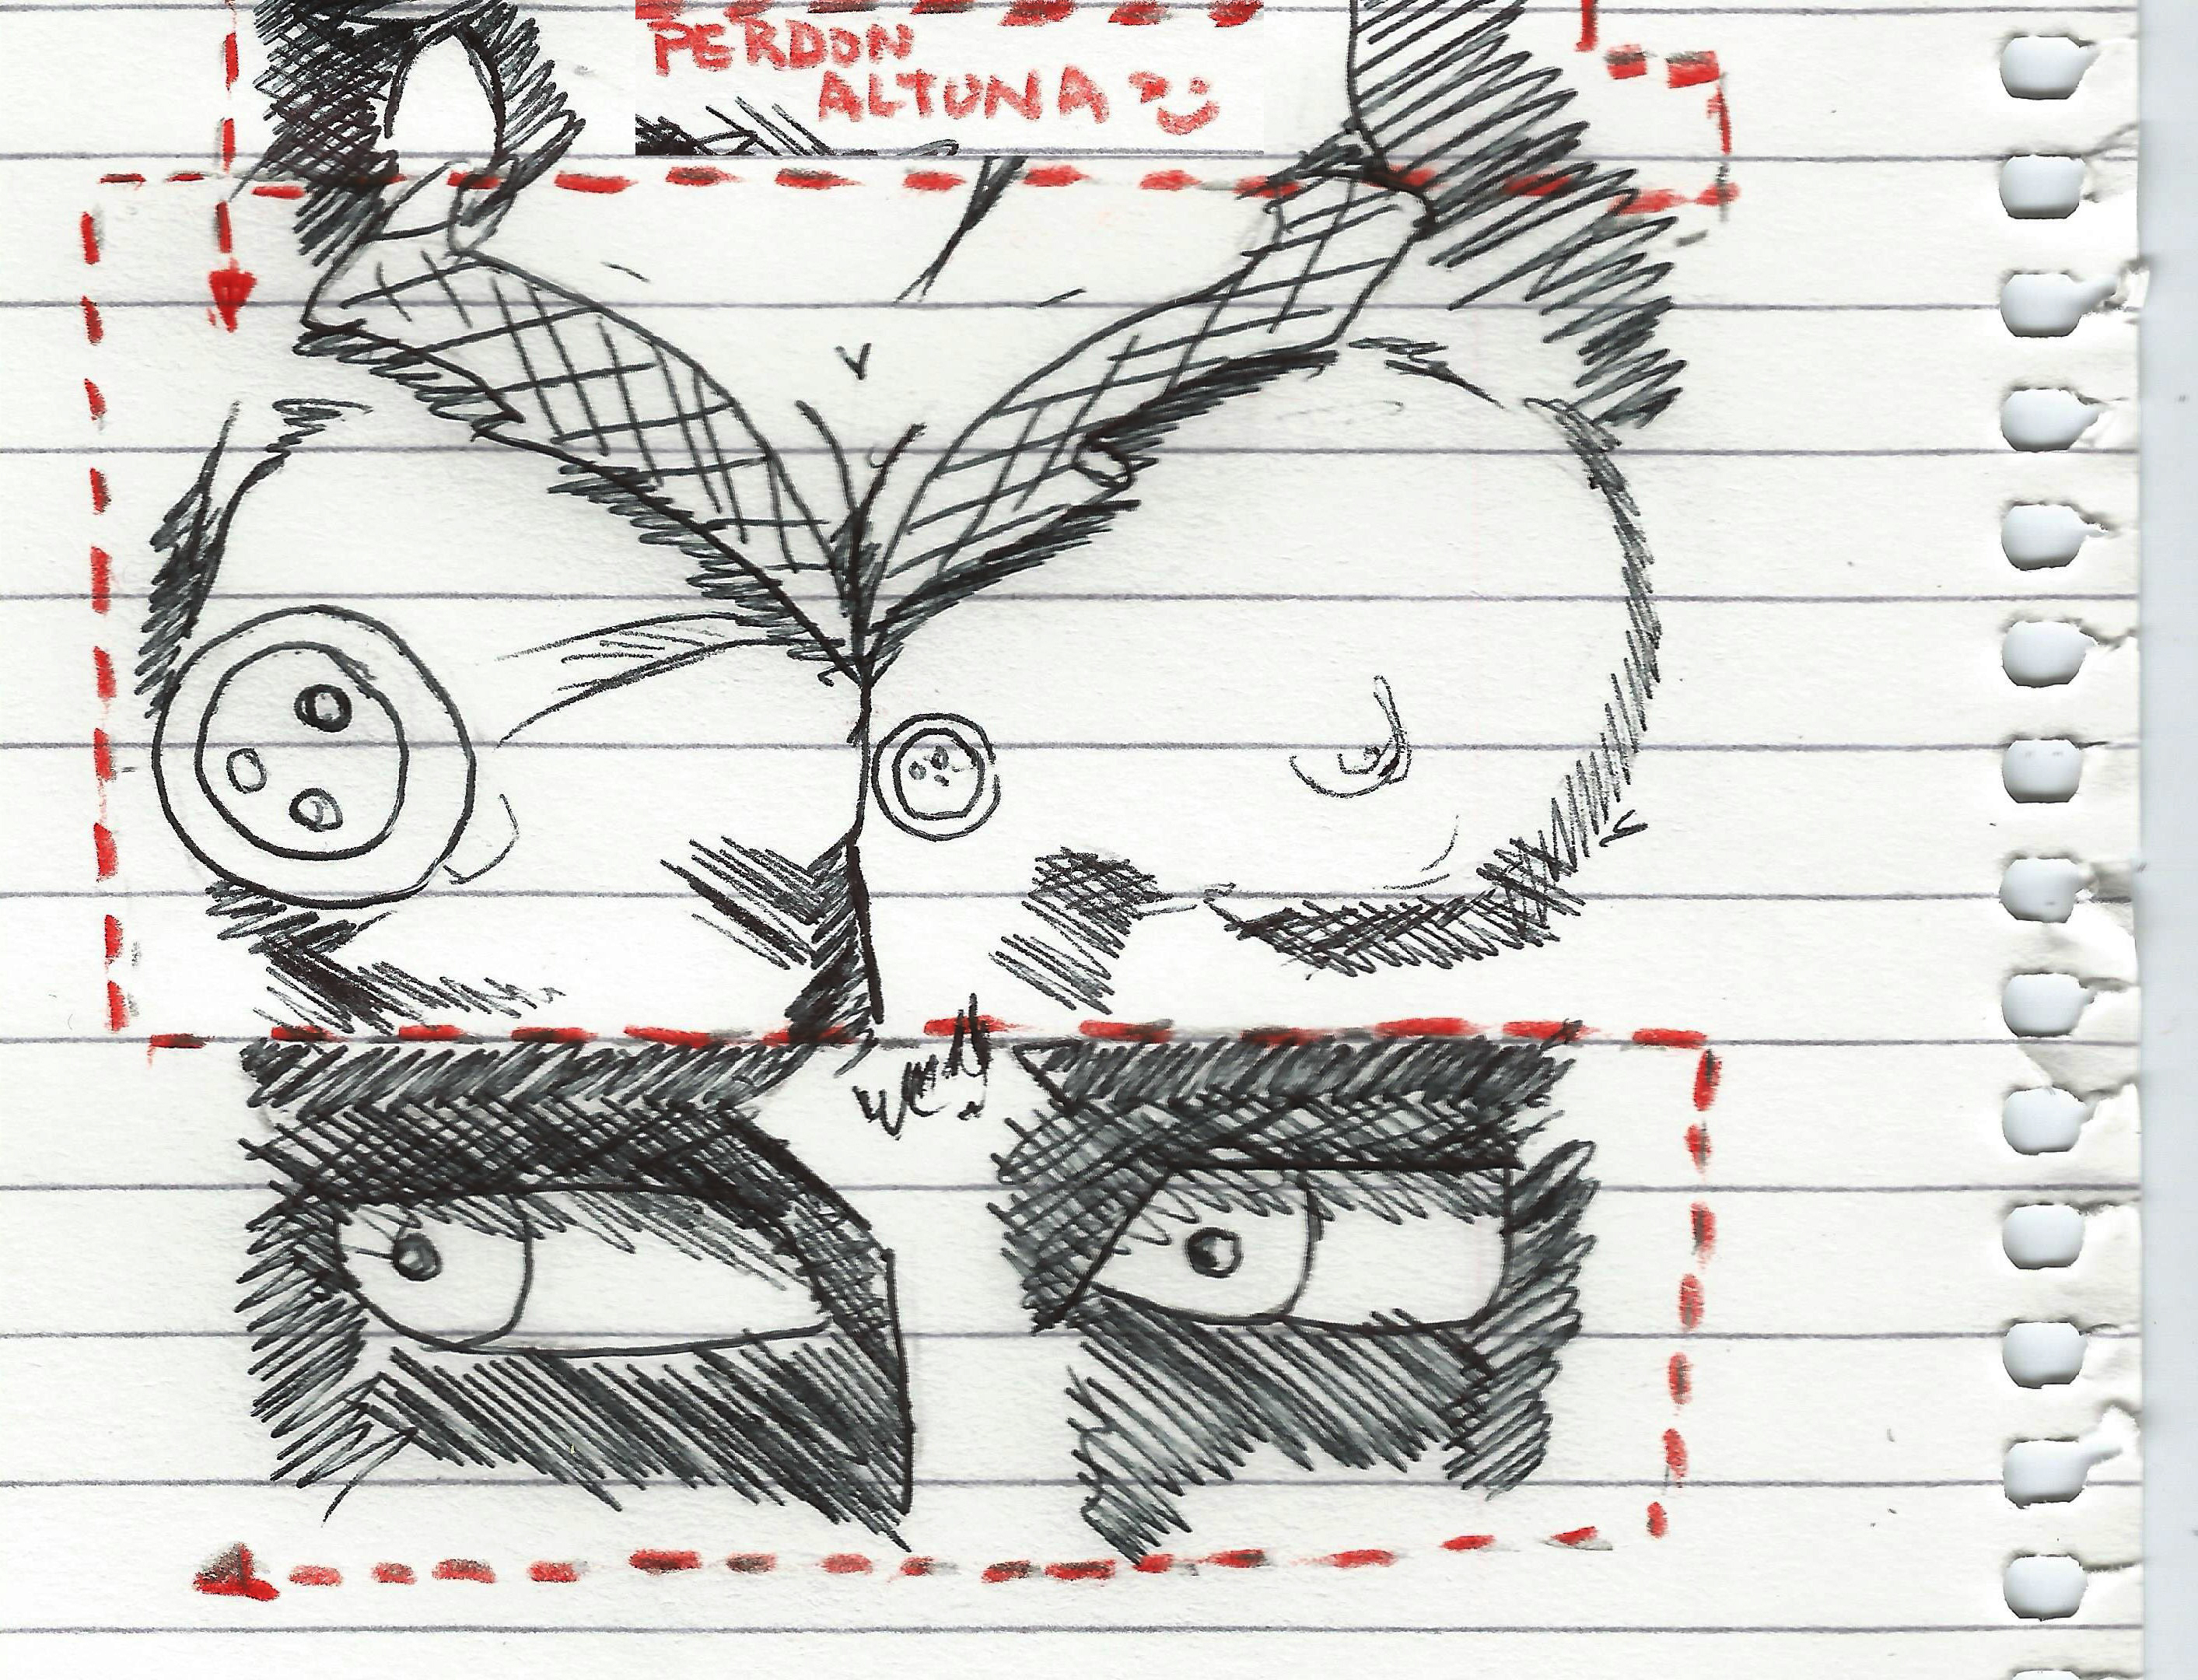 PERDON
ALTUNA